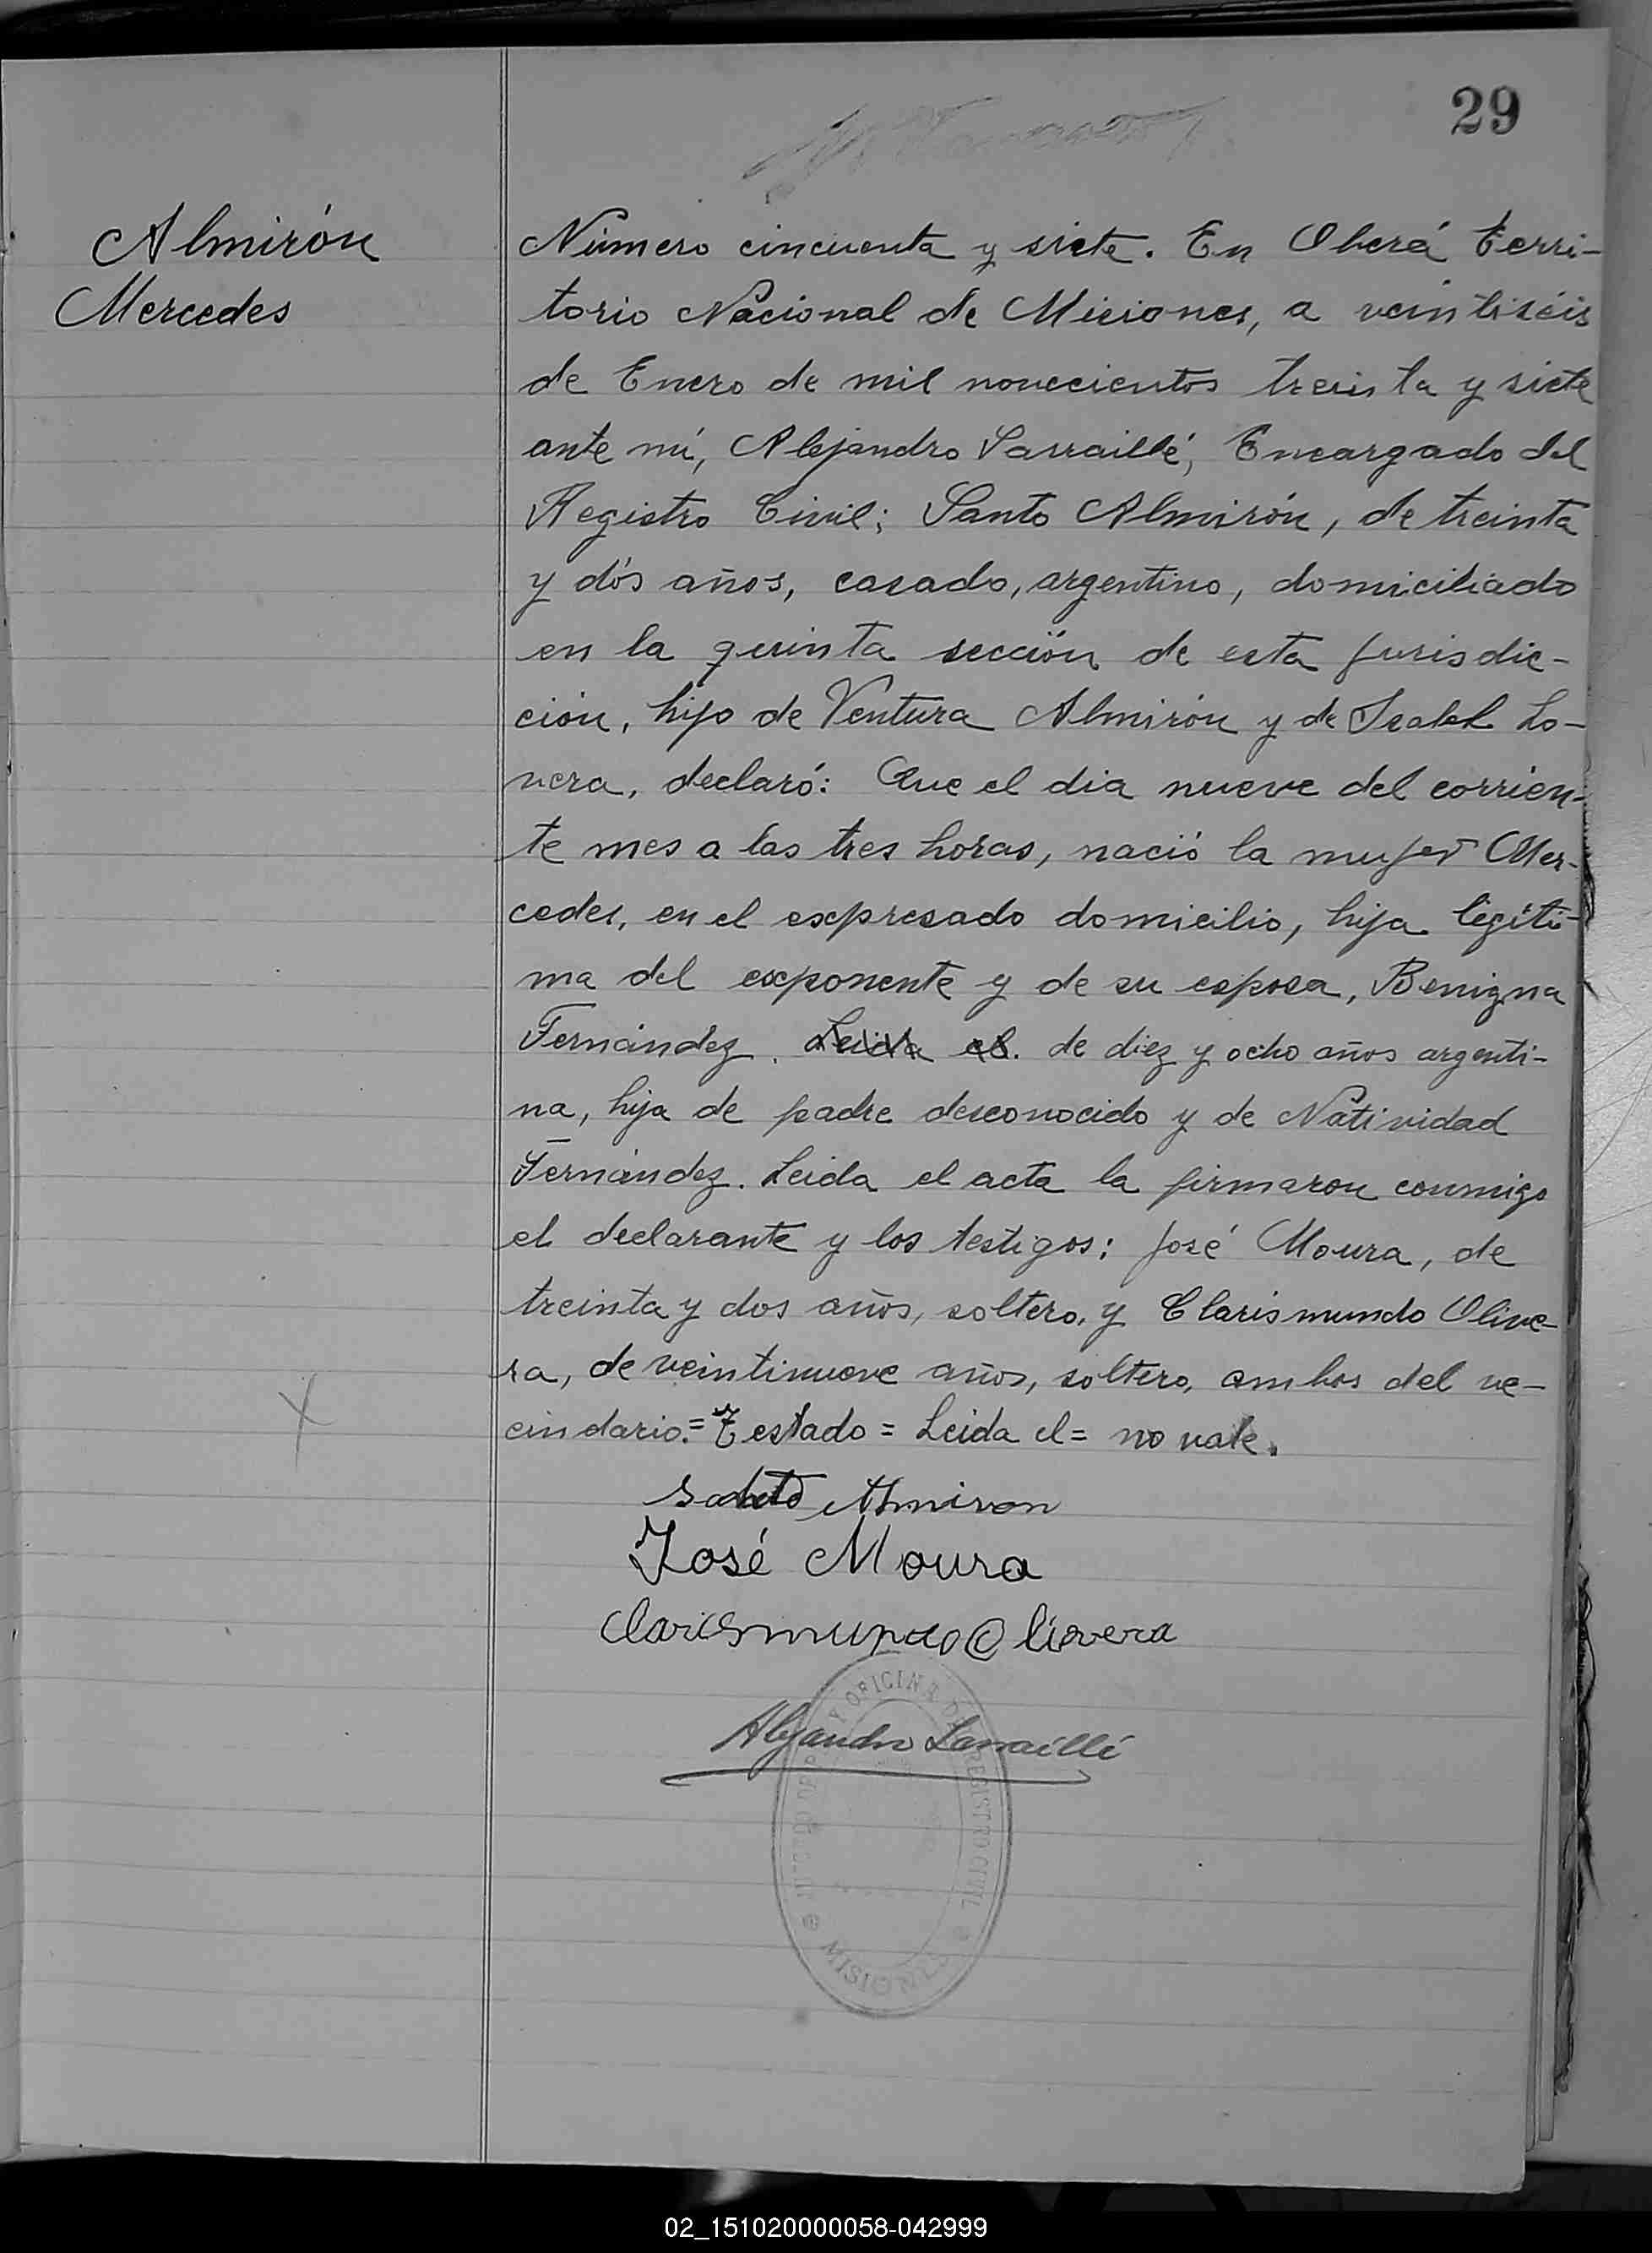 29
Almirón
Mercedes
Número cincuenta y siete. En Oberá terri-
torio Nacional de Misiones, a veintiséis
de Enero de mil novecientos treinta y siete
ante mí, Alejandro Sarraillé, Encargado del
Registro Civil; Santo Almirón, de treinta
y dós años, casado, argentino, domiciliado
en la quinta sección de esta jurisdic-
ción, hijo de Ventura Almirón y de Isabel Lo-
vera, declaró: Que el dia nueve del corrien-
te mes a las tres horas, nació la mujer Mer-
cedes, en el expresado domicilio, hija legíti-
ma del exponente y de su esposa, Benigna
Fernández. Leida el. de diez y ocho años argenti-
na, hija de padre desconocido y de Natividad
Fernández. Leida el acta la firmaron conmigo
el declarante y los testigos; José Moura, de
treinta y dos años, soltero, y Clarismundo Olive-
ra, de veintinueve años, soltero, ambos del ve-
cindario.= Testado = Leida el = no vale.
Santo Almiron
José Moura
Clarismundo Olivera
Alejandro Sarraillé
OFICINA DE REGISTRO CIVIL
MISIONES
02_151020000058-042999